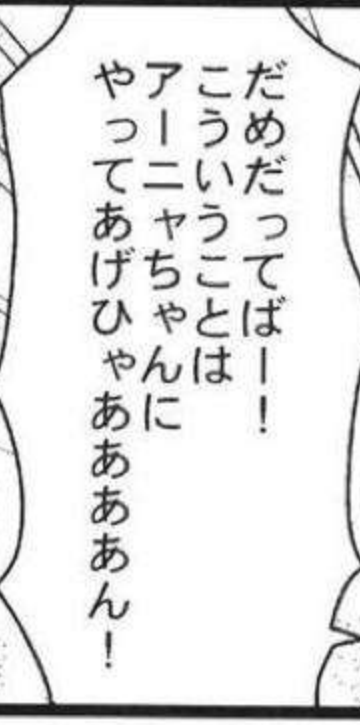 だめだってばー！
こういうことは
アーニャちゃんに
やってあげひゃああああん！